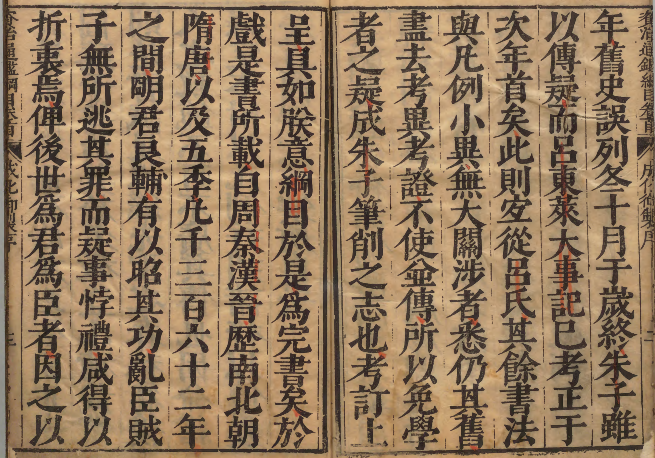 年舊史誤列冬十月于歲終朱子雖
以傳疑而呂東萊大事記已考正于
次年首矣此則宜從呂氏其餘書法
與凡例小異無大關涉者悉仍其舊
盡去考異考證不使並傳所以免學
者之疑成朱子筆削之志也考訂上
呈真如朕意綱目於是為完書矣於
戲是書所載自周秦漢晉歷南北朝
隋唐以及五季凡千三百六十二年
之間明君良輔有以昭其功亂臣賊
子無所逃其罪而疑事悖禮咸得以
折衷焉俾後世為君為臣者因之以